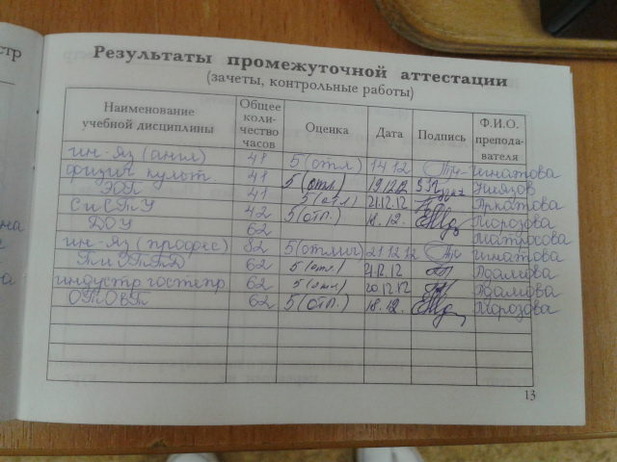 стр
Результаты промежуточной аттестации
(зачеты, контрольные работы)
Наименование учебной дисциплины Общее коли-чество часов Оценка Дата Подпись Ф.И.О. препода-вателя
ин-яз (англ) 48 5 (отл) 14.12 Игнатова
физич культ. 41 5 (отл.) 19.12.12
41 5 (отл) 21.12.12
СиСПУ 42 5 (отл.) 18.12. Морозова
ДОУ 62 Матросова
ин-яз (професс) 82 5 (отлич) 21.12.12 Игнатова
62 5 (отл.) 21.12.12 Адамова
индустр гостепр. 62 5 (отл) 20.12.12 Адамова
62 5 (отл.) 18.12. Морозова
13